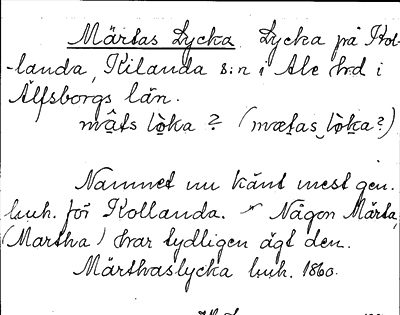 Märtas Lycka Lycka på Kol-
-landa, Kilanda s:n i Ale hrd i
Älfsborgs län.
mâts lò̠ka ? (mæṭas lò̠ka ?)
Namnet nu känt mest gen.
huh. för Kollanda. Någon Märta,
(Martha) har tydligen ägt den.
Märthaslycka huh. 1860.